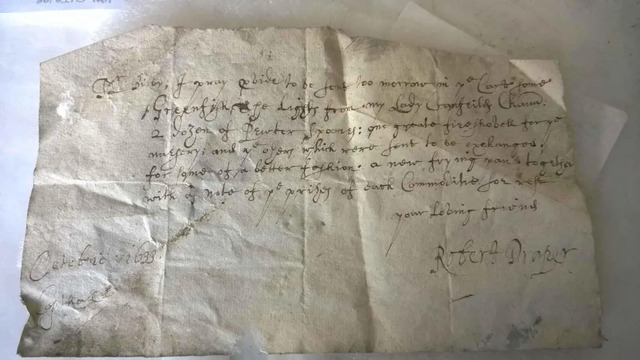 Mr Bilby, I pray pvide to be sent too morrow in ye Cart some
Greenfish, The Lights from my Lady Cranfeilds Cham
2 dozen of Pewter spoons: one greate fireshovell for ye
nursery: and ye oyers which were sent to be exchanged
for some of a better fashion. a new frying pan together
with a note of ye prises of such Commoditie for ye rest
your loving friend
Robert Draper
Octobre 1633